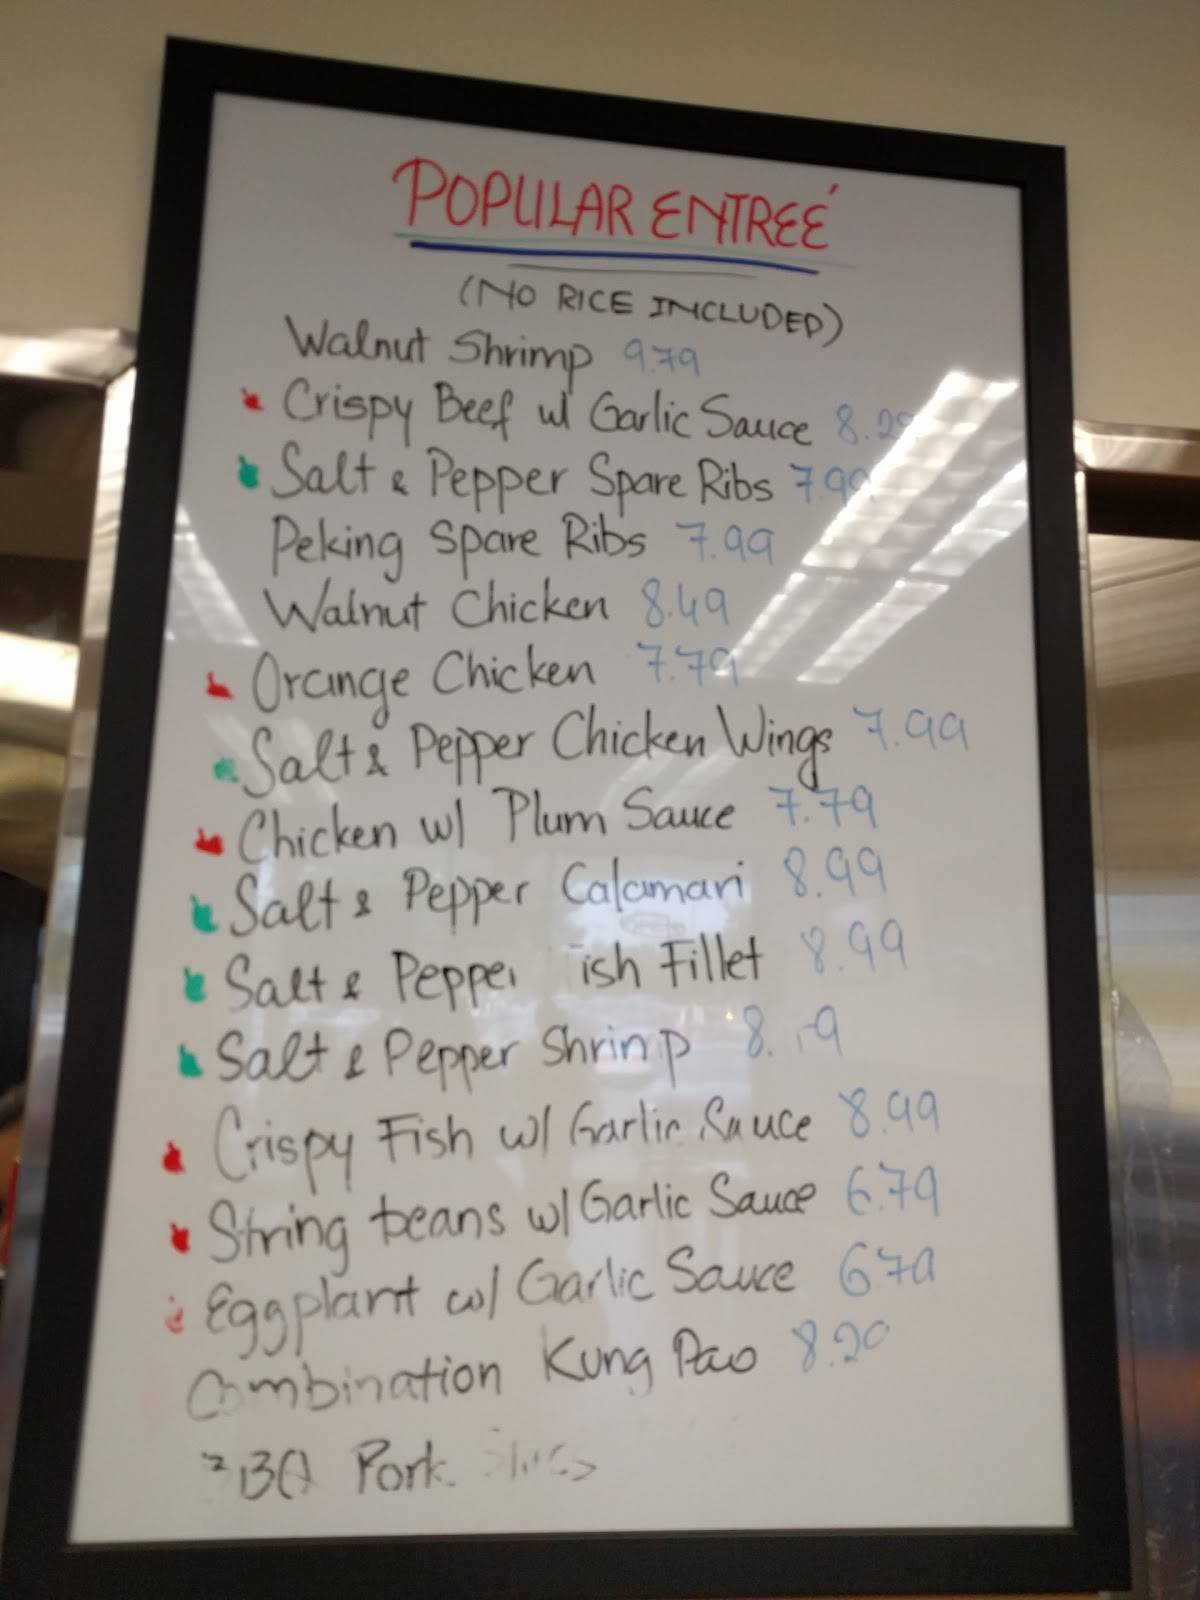 POPULAR ENTREÉ
(NO RICE INCLUDED)
Walnut Shrimp 9.79
Crispy Beef w/ Garlic Sauce 8.29
Salt & Pepper Spare Ribs 7.99
Peking Spare Ribs 7.99
Walnut Chicken 8.49
Orange Chicken 7.79
Salt & Pepper Chicken Wings 7.99
Chicken w/ Plum Sauce 7.79
Salt & Pepper Calamari 8.99
Salt & Pepper ish Fillet 8.99
Salt & Pepper Shrimp
Crispy Fish w/ Garlic Sauce 8.99
String beans w/ Garlic Sauce 6.79
Eggplant w/ Garlic Sauce 679
Combination Kung Pao 8.29
BBQ Pork